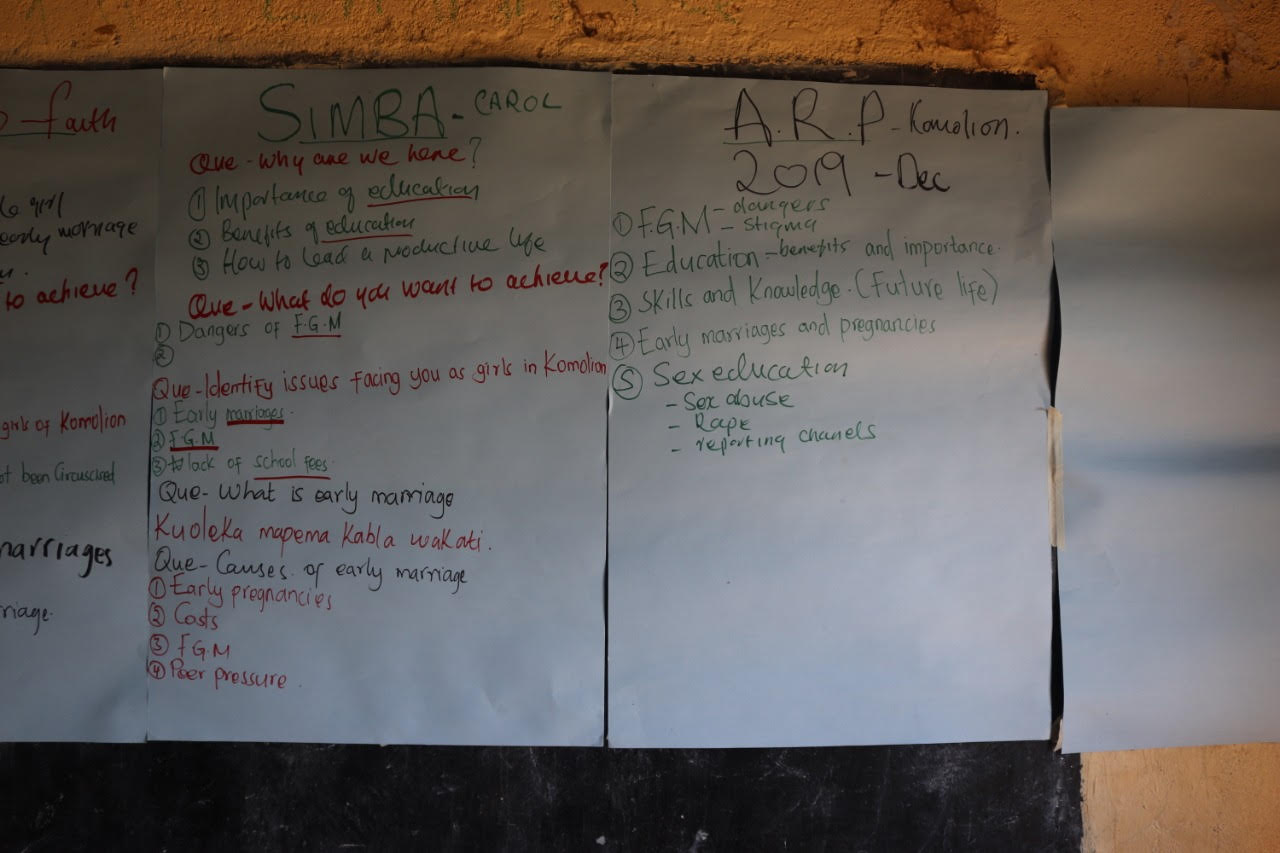 faith
girl
early marriage
to achieve?
girls of Komolion
been Circuscised
marriages
SIMBA - CAROL
Que - Why are we here?
① Importance of education
② Benefits of education
③ How to lead a productive life
Que - What do you want to achieve?
① Dangers of F.G.M
②
Que - Identify issues facing you as girls in Komolion
① Early marriages.
② F.G.M
③ lack of school fees.
Que - What is early marriage
Kuoleka mapema Kabla wakati.
Que - Causes. of early marriage
① Early pregnancies
② Costs
③ F.G.M
④ Peer pressure.
A.R.P - Komolion.
2019 - Dec
① F.G.M - dangers
- Stigma
② Education - benefits and importance.
③ Skills and Knowledge. (Future life)
④ Early marriages and pregnancies
⑤ Sex education
- Sex abuse
- Rape
- reporting chanels